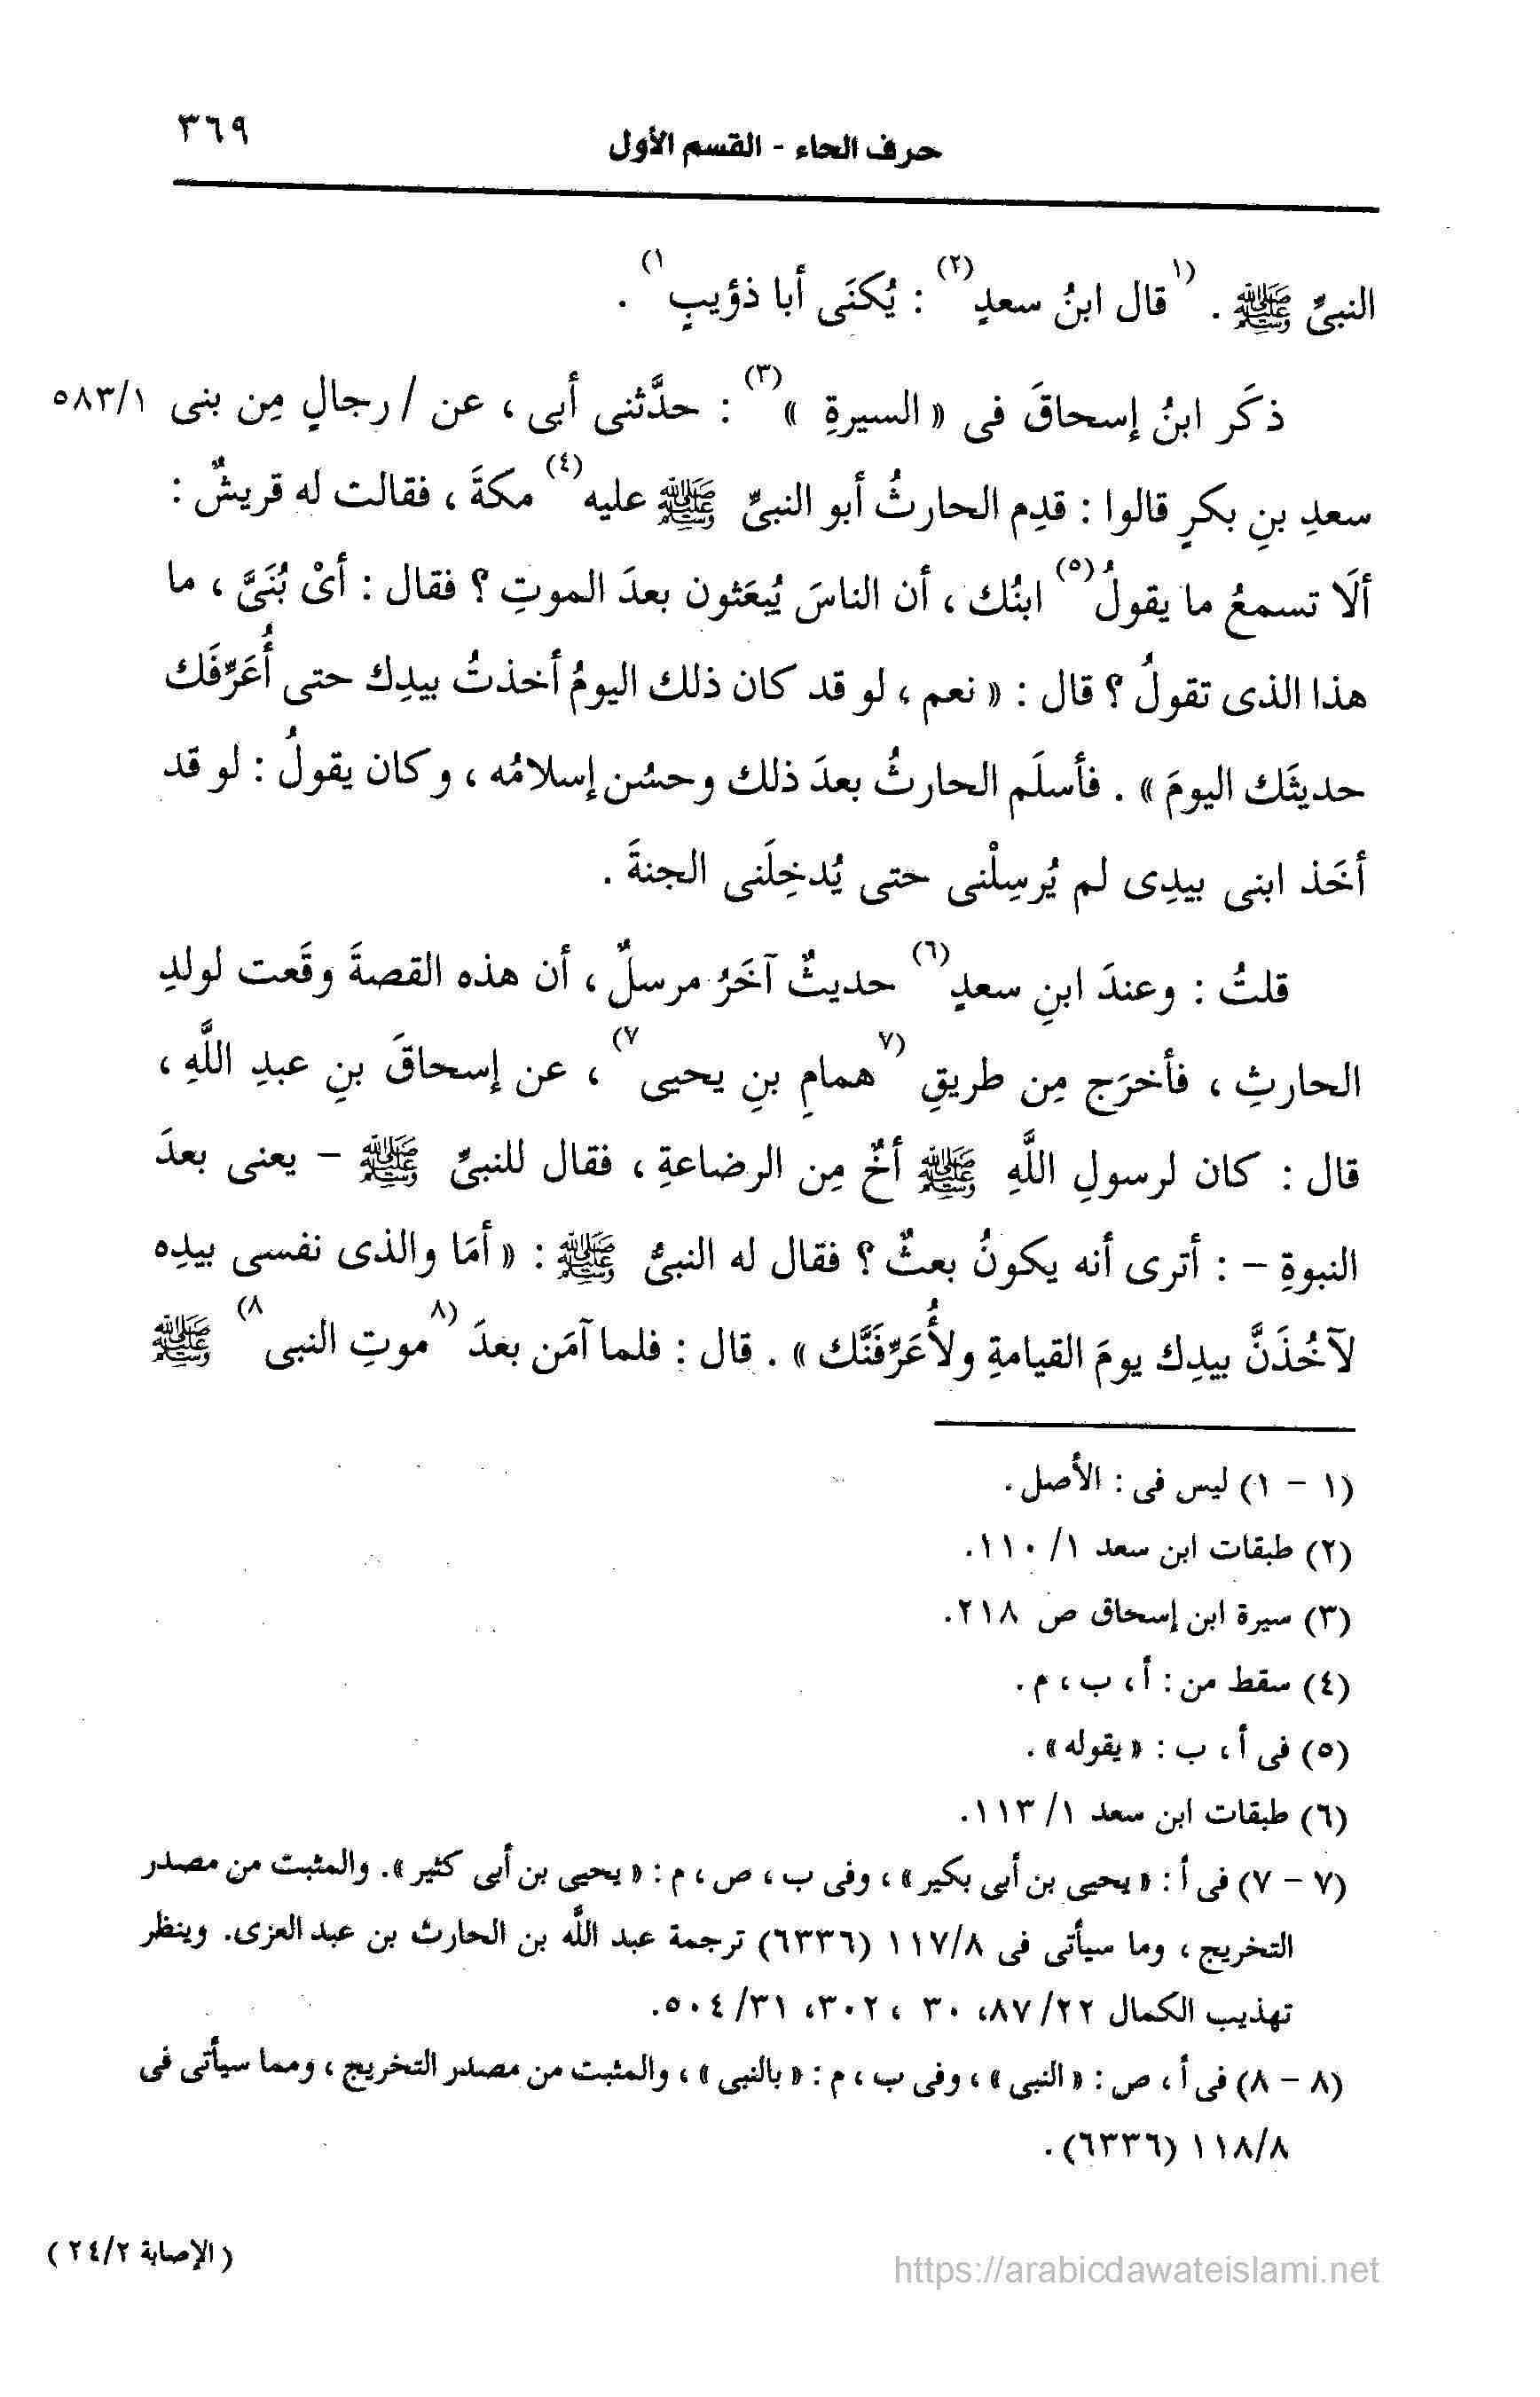 حرف الحاء - القسم الأول
٣٦٩
النبىِّ ﷺ . (١قال ابنُ سعدٍ(٢) : يُكنَى أبا ذؤيبٍ١) .
ذكَر ابنُ إسحاقَ فى « السيرةِ »(٣) : حدَّثنى أبى ، عن / رجالٍ مِن بنى ٥٨٣/١
سعدِ بنِ بكرٍ قالوا : قدِم الحارثُ أبو النبىِّ ﷺ عليه(٤) مكةَ ، فقالت له قريشٌ :
ألَا تسمعُ ما يقولُ(٥) ابنُك ، أن الناسَ يُبعَثون بعدَ الموتِ ؟ فقال : أىْ بُنَىَّ ، ما
هذا الذى تقولُ ؟ قال : « نعم ، لو قد كان ذلك اليومُ أخذتُ بيدِك حتى أُعَرِّفَك
حديثَك اليومَ » . فأسلَم الحارثُ بعدَ ذلك وحسُن إسلامُه ، وكان يقولُ : لو قد
أخَذ ابنى بيدِى لم يُرسِلْنى حتى يُدخِلَنى الجنةَ .
قلتُ : وعندَ ابنِ سعدٍ(٦) حديثٌ آخَرُ مرسلٌ ، أن هذه القصةَ وقَعت لولدِ
الحارثِ ، فأخرَج مِن طريقِ (٧همامِ بنِ يحيى٧) ، عن إسحاقَ بنِ عبدِ اللَّهِ ،
قال : كان لرسولِ اللَّهِ ﷺ أخٌ مِن الرضاعةِ ، فقال للنبىِّ ﷺ - يعنى بعدَ
النبوةِ - : أترى أنه يكونُ بعثٌ ؟ فقال له النبىُّ ﷺ : « أمَا والذى نفسى بيدِه
لآخُذَنَّ بيدِك يومَ القيامةِ ولأُعَرِّفَنَّك » . قال : فلما آمَن بعدَ (٨موتِ النبى٨) ﷺ
(١ - ١) ليس فى : الأصل .
(٢) طبقات ابن سعد ١/ ١١٠.
(٣) سيرة ابن إسحاق ص ٢١٨.
(٤) سقط من : أ ، ب ، م .
(٥) فى أ ، ب : « يقوله » .
(٦) طبقات ابن سعد ١/ ١١٣.
(٧ - ٧) فى أ : « يحيى بن أبى بكير » ، وفى ب ، ص ، م : « يحيى بن أبى كثير ». والمثبت من مصدر
التخريج ، وما سيأتى فى ١١٧/٨ (٦٣٣٦) ترجمة عبد اللَّه بن الحارث بن عبد العزى. وينظر
تهذيب الكمال ٢٢/ ٨٧، ٣٠ ، ٣٠٢، ٣١/ ٥٠٤.
(٨ - ٨) فى أ ، ص : « النبى » ، وفى ب ، م : « بالنبى » ، والمثبت من مصدر التخريج ، ومما سيأتى فى
١١٨/٨ (٦٣٣٦) .
( الإصابة ٢٤/٢ )
https://arabicdawateislami.net